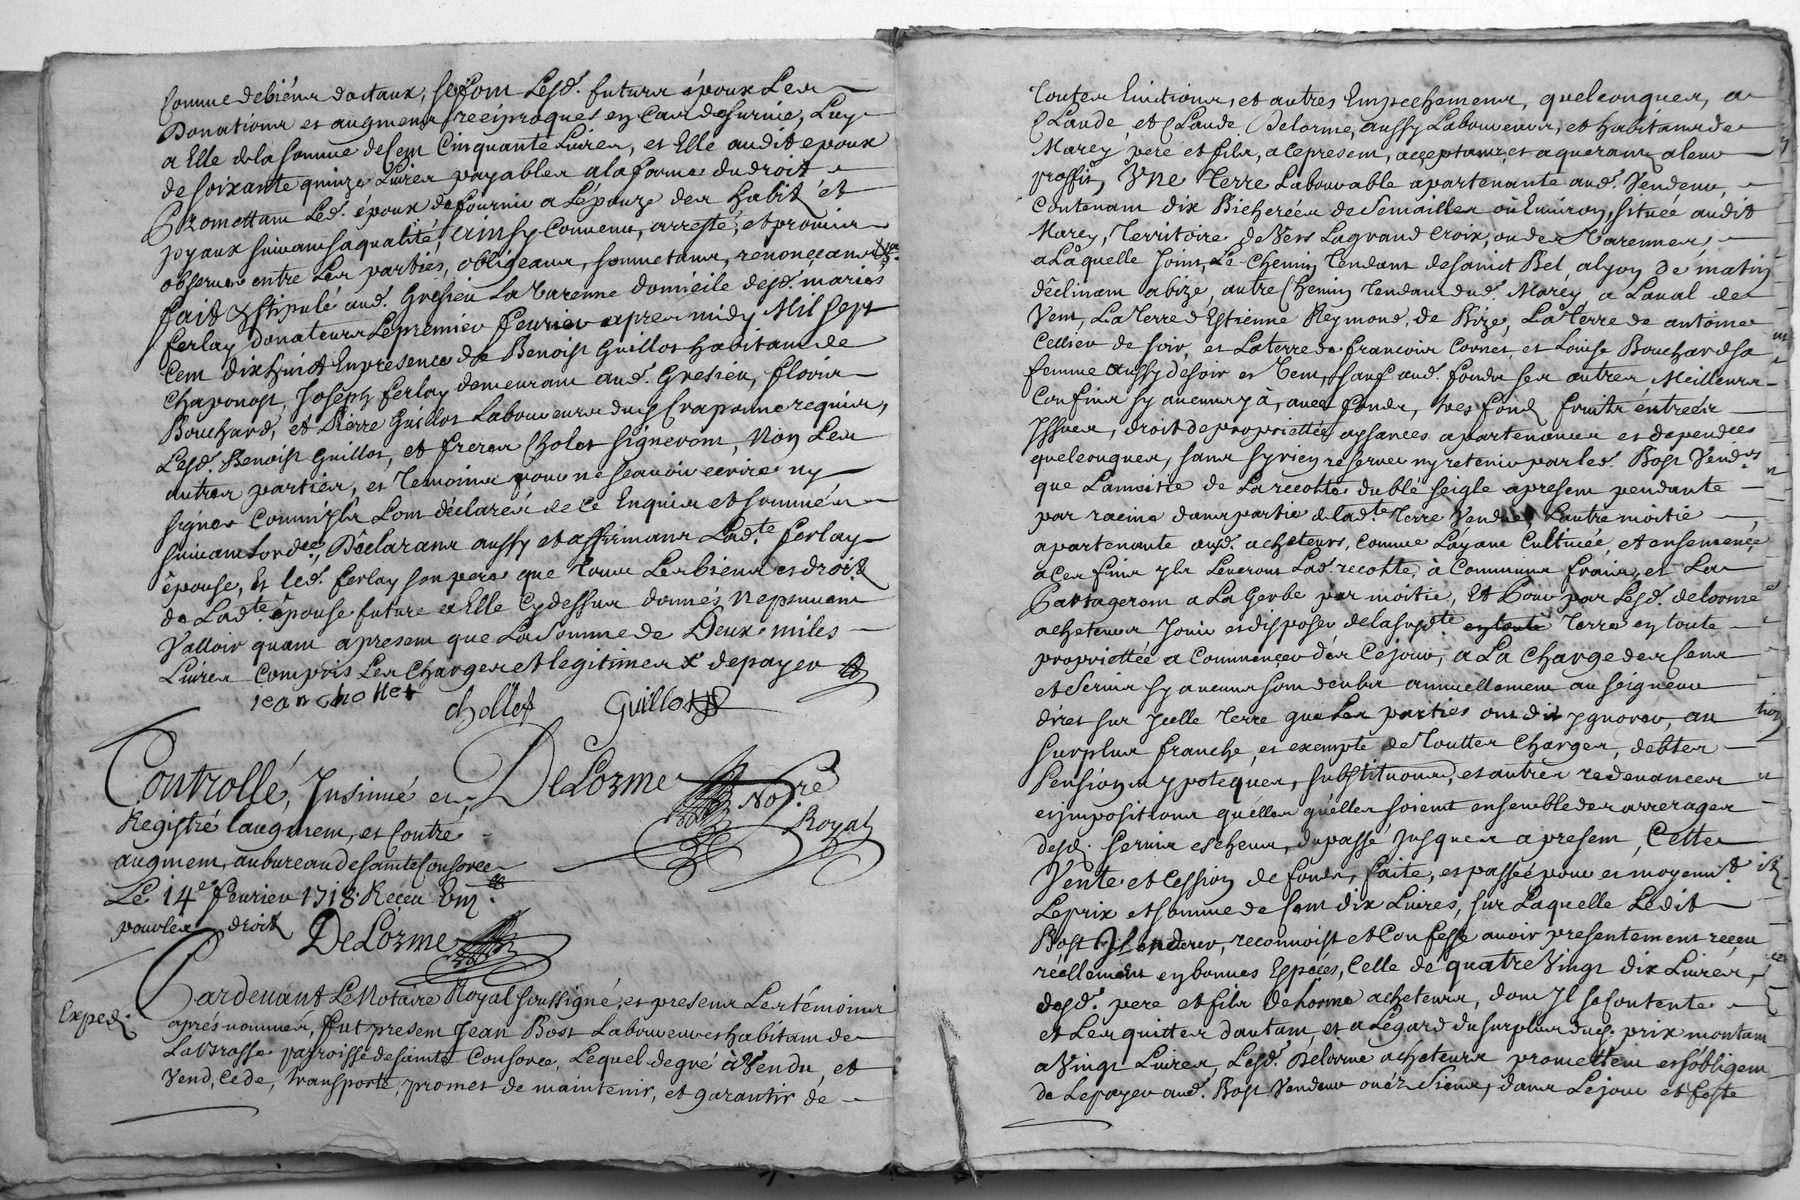 Comme de biens dotaux, se font Lesd. futurs époux Les
Donations et augmens reciproques en Cas de survie, Luy
a Elle de la somme de Cent Cinquante Livres, et Elle audit epoux
de soixante quinze Livres payables a la forme du droit
Promettant Led. époux de fournir a L'épouze des habits et
joyaux suivant sa qualité, ainsy Convenu, arresté, et promis
observer entre Les parties, obligeans, soumettans, renonçeans &a.
fait & stipulé aud. Gresieu La Varenne domicile desd. mariés
ferlay donateurs Le premier fevrier apres midy Mil sept
Cent dix huit En presence de Benoist Guillot habitant de
Chaponost, Joseph ferlay demeurant aud. Gresieu, fleury
Bouchard, et Pierre Guillot Laboureurs dud. Craponne requis,
Lesd. Benoist Guillot, et freres Cholet signeront, Non Les
autres parties, et Temoins pour ne scavoir ecrire ny
signer Comm'ils L'ont déclarés de ce Enquis et sommés
suivant Lord.ce, Déclarans aussy et affirmans Lad.te ferlay
épouse, Et led. ferlay son pere que Tous Les biens et droits
de Lad.te épouse future a Elle Cydessus donnés Ne peuvent
Valloir quant apresent que La somme de Deux miles
Livres Compris Les Charges et legitimes x depayer
jean chollet
chollet
Guillot
Controllé, Insinué et
DeLorme
No.re
Royal
Registré l'augment, et Contre
augment, au bureau de sainte Consorce
Le 14e fevrier 1718. Receu
pour les droits
DeLorme
Exped.
Pardevant Le Notaire Royal soussigné, et presens Les témoins
aprés nommés, fut present Jean Bost Laboureur et habitant de
La Brosse parroisse de sainte Consorce, Lequel de gré a Vendu, et
Vend, Cede, transporte, promet de maintenir, et garantir de
Toutes Evictions, et autres Empechemens, quelconques, a
Claude, et Claude Delorme, aussy Laboureurs, et habitans de
Marcy pere et fils, a ce present, acceptans, et aquerans a leur
proffit, Une Terre Labourable apartenante aud. Vendeur,
Contenant dix Bicherées de Semailles ou Environ, située audit
Marcy, Territoire de Vers La grand Croix, ou des Varennes,
a Laquelle Joint, Le Chemin Tendant de saint Bel, a lyon de matin
déclinant a bize, autre Chemin Tendant dud. Marcy a Laval de
Vent, La Terre d'Estienne Reymond, de Bize, La Terre de antoine
Cellier de soir, et La terre de francois Cornet et Louise Bouchard sa
femme aussy de soir et Vent, sauf aud. fonds ses autres Meilleurs
Confins sy aucuns y à, avec fonds, tres fond fruits entrées
Issues, droit de proprietté, aysances apartenances et dependces
quelconques, sans sy rien reserver ny retenir par led. Bost Vendr.
que La moitié de La recolte du blé seigle apresent pendante
par racine dans partie de lad.te Terre Vendue, L'autre moitié
apartenante aud. acheteurs, Comme L'ayant Cultivée, et ensemencée
a Ces fins ils Leveront Lad. recolte, à Communs frais, et La
Partageront a La Gerbe par moitié, Et Pour par Lesd. delorme
acheteurs Jouir et disposer de la susd.te Terre en toute
proprietté a Commencer dés Ce jour, a La Charge des Cens
et Servis sy aucuns sont deubs annuellement au seigneur
direct sur Icelle Terre que Les parties ont dit ygnorer, au
surplus franche, et exempte de Touttes Charges, debtes
Pensions ypoteques, substitutions, et autres redevances
et impositions quelles qu'elles soient ensemble des arrerages
desd. servis escheus, du passé jusques a present, Cette
Vente et Cession de fonds, faite, et passée pour et moyent.
Le prix et somme de Cent dix Livres, sur Laquelle Ledit
Bost Vendeur, reconnoist et Confesse avoir presentement receu
réellement en bonnes Especes, Celle de quatre Vingt dix Livres,
desd. pere et fils Delorme acheteurs, dont Il se Contente
et Les quitte d'autant, et a L'égard du surplus dud. prix montant
a Vingt Livres, Lesd. Delorme acheteurs promettent et s'obligent
de Le payer aud. Bost Vendeur ou és Siens, dans Le jour et feste